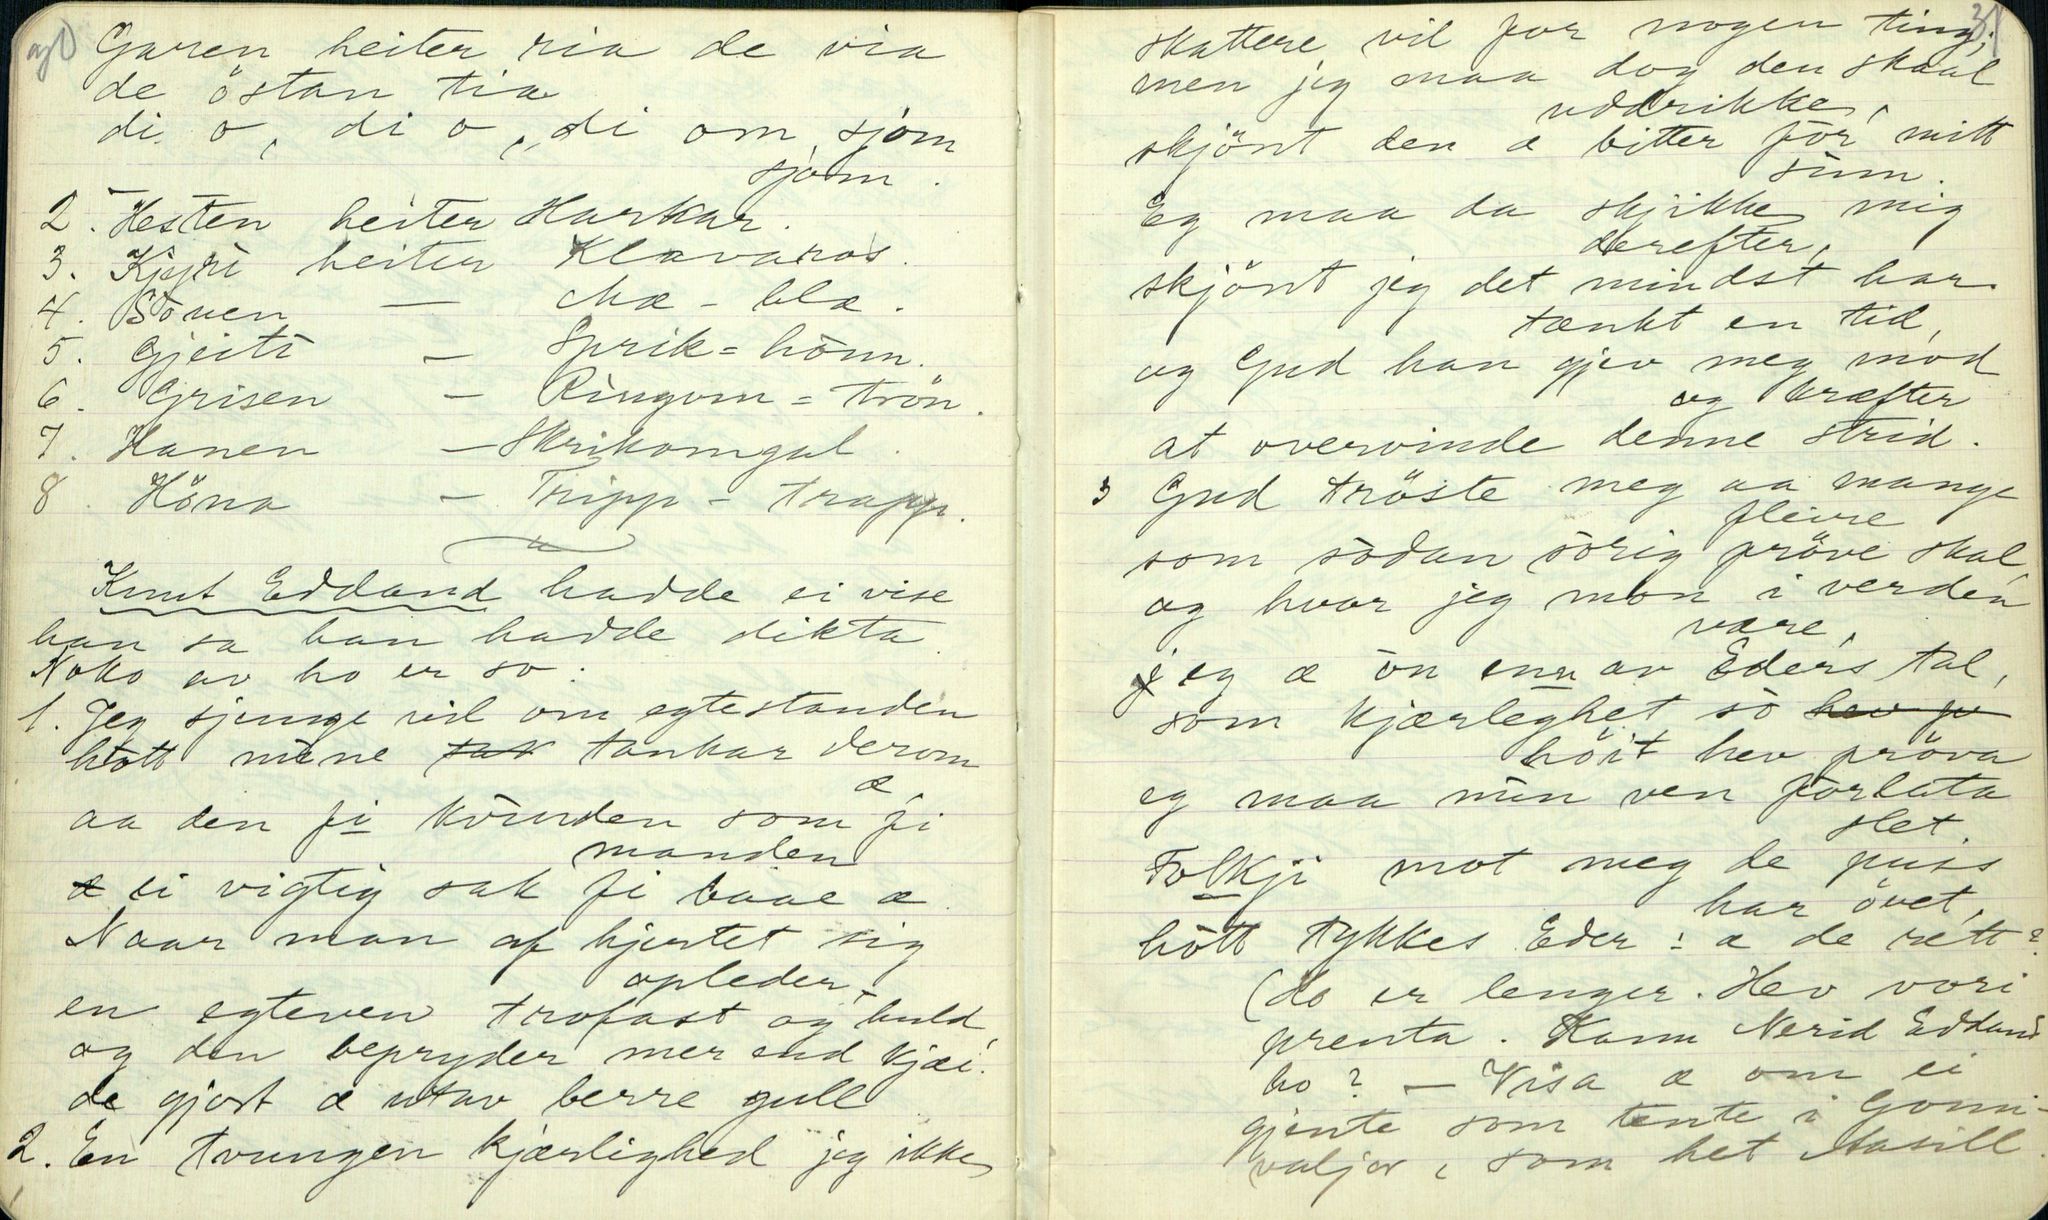 Garen heiter ria de via
de östan tia
di o, di o, di om sjom
sjom.
2. Hesten heiter Harkar.
3. Kjyri heiter Klavaros.
4. Souen — Mæ-blæ.
5. Gjeiti — Sprik=hönn.
6. Grisen — Ringom=trön.
7. Hanen — Skrikomgal.
8. Höna — Tripp-trapp.
Knut Eddand hadde ei vise
han sa han hadde dikta.
Noko av ho er so:
1. Jeg sjunge vil om egtestanden
hott mine tankar derom
æ,
aa den fi kvinden som fi
manden
ei vigtig sak fi baae æ.
Naar man af hjertet sig
opleder
en egteven trofast og huld
og den bepryder mer end kjæi.
de gjort æ utav berre gull
2. En tvungen kjærlighed jeg ikke
31
skattere vil for nogen ting,
men jeg maa dog den skaal
uddrikke,
skjönt den æ bitter for mitt
sinn.
Eg maa da skjikke mig
derefter,
skjönt jeg det mindst har
tænkt en tid,
og Gud han gjev meg mod
og kræfter
at overvinde denne strid.
3 Gud tröste meg aa mange
fleire
som sodan sorig pröve skal,
og hvor jeg mon i verden
være,
jeg æ on enn av Eders tal,
som kjærleghet so
höit hev pröva
eg maa min ven forlata
slet.
Folkji mot meg de puss
har övet,
hott tykkes Eder: æ de rett?
(Ho er lenger. Hev vori
prenta. Kann Nerid Eddand
ho? — Visa æ om ei
gjente som tente i Gomi-
valjor, som het Aasill.